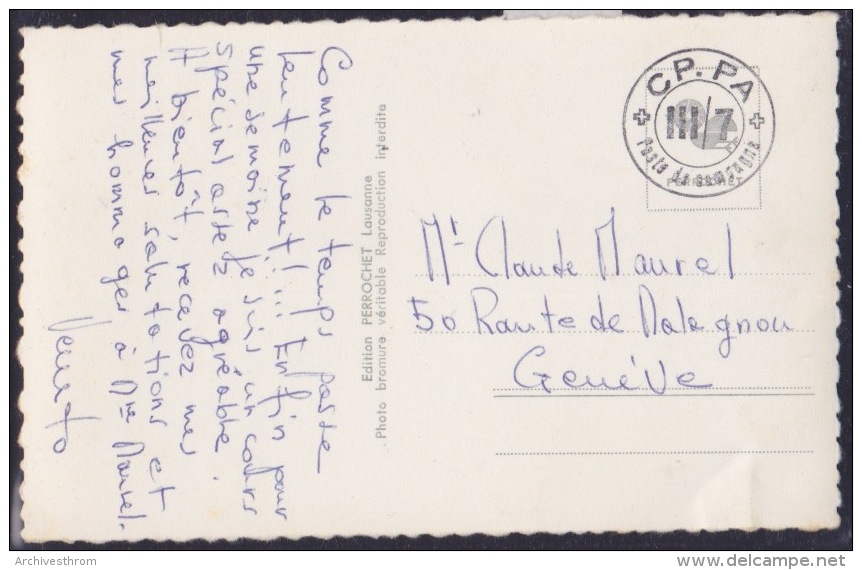 Comme le temps passe
lentement!!! Enfin pour
une semaine je suis un cours
spécial assez agréable.
A bientôt, recevez mes
meilleures salutations et
mes hommages à Mme Maurel.
Edition PERROCHET Lausanne
Photo bromure véritable Reproduction interdite
CP. PA
III/7
Poste de campagne
PERROCHET
Mr Claude Maurel
50 Route de Malagnou
Genève
Archivesthrom
delcampe.net